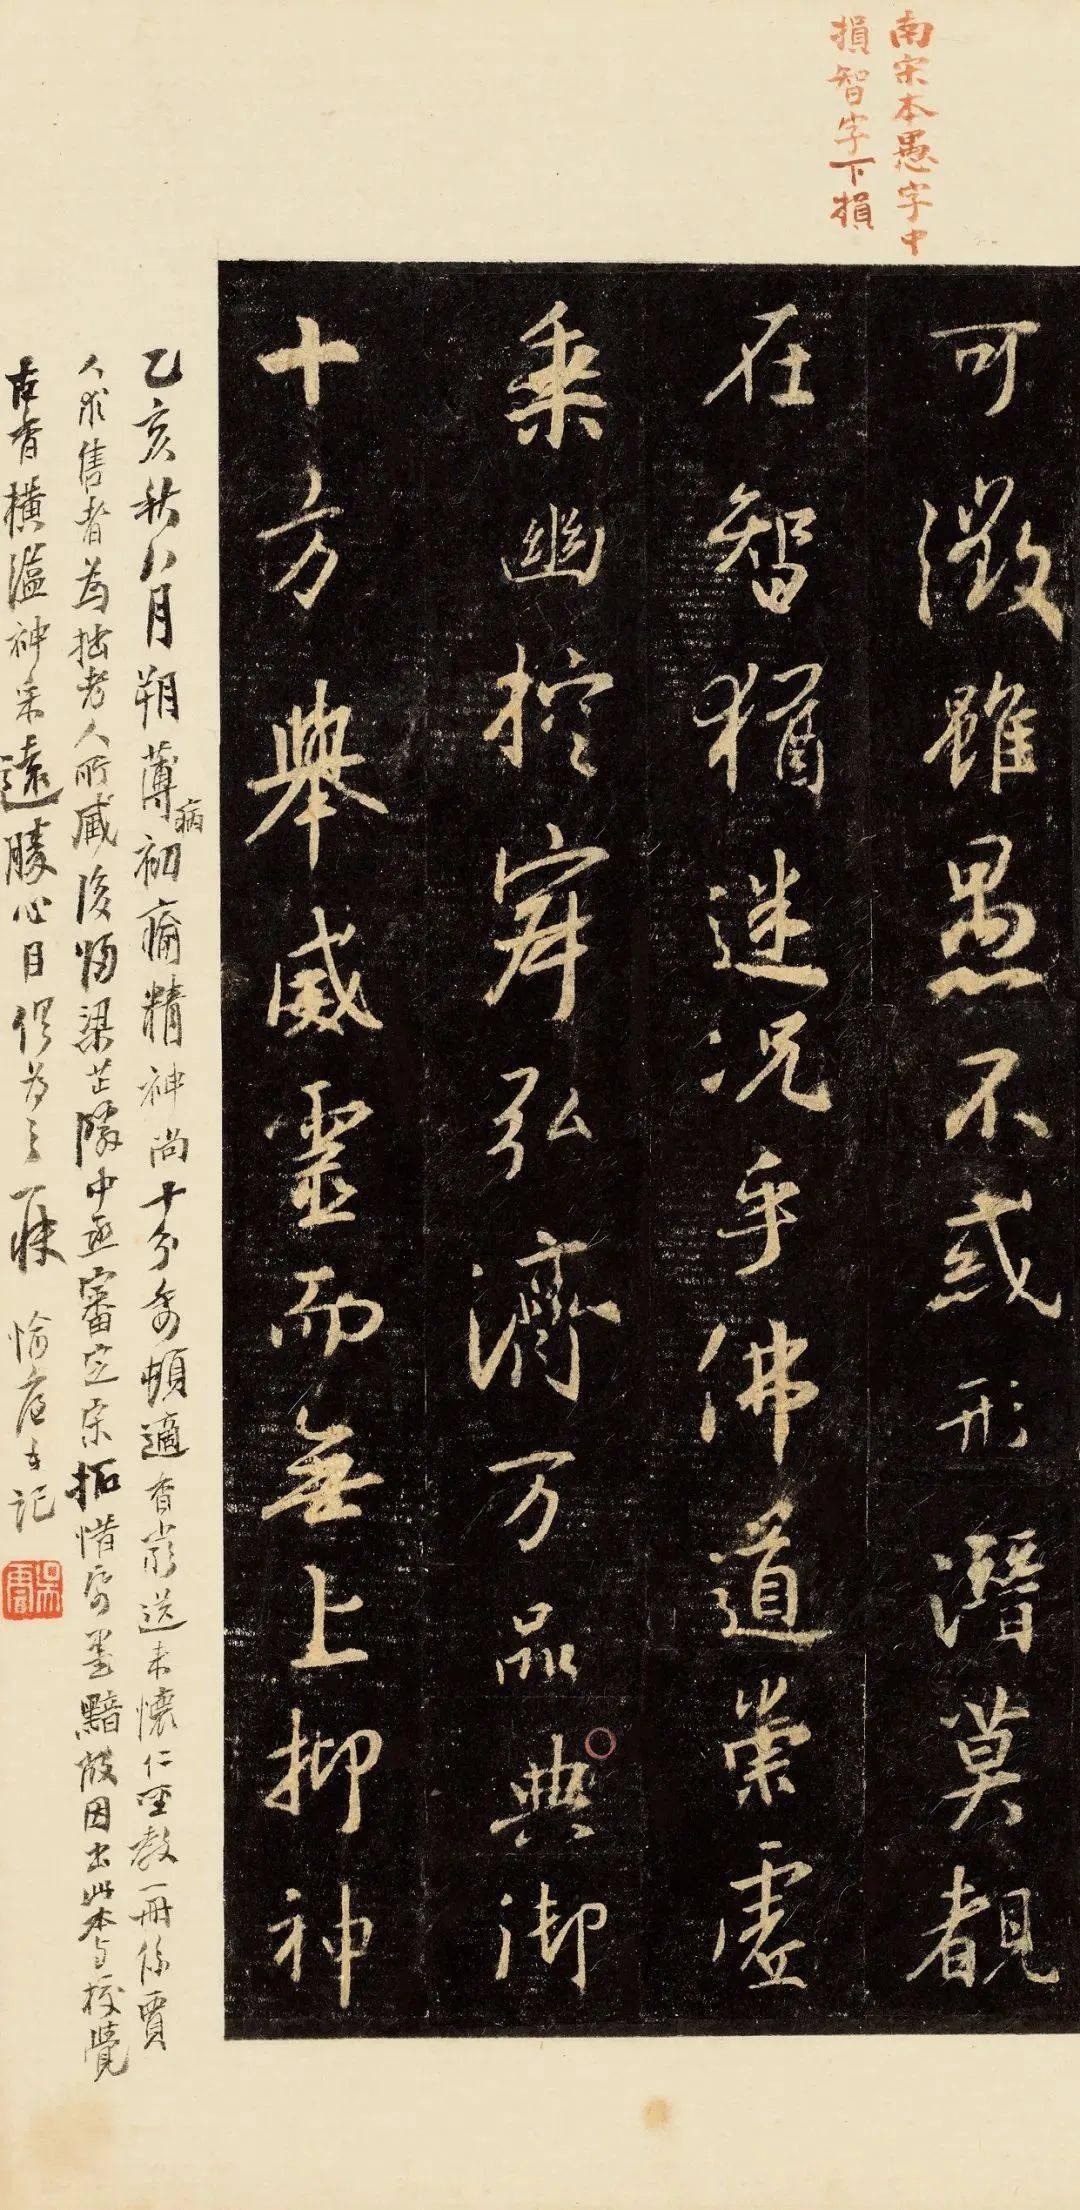 南宋本愚字中
損智字下損
可徵雖愚不惑形潛莫覩
在智猶迷況乎佛道崇虛
乘幽控寂弘濟万品典御
十方舉威靈而無上抑神
乙亥秋八月朔薄病初痊精神尚十分委頓適香嚴送來懷仁聖教一冊係賈
人求售者為拙老人所藏後歸梁芷隣中丞審定宋拓惜字墨黯敝因出此本與校覺
古香橫溢神采遠勝心目俱為之一快 愉庭記